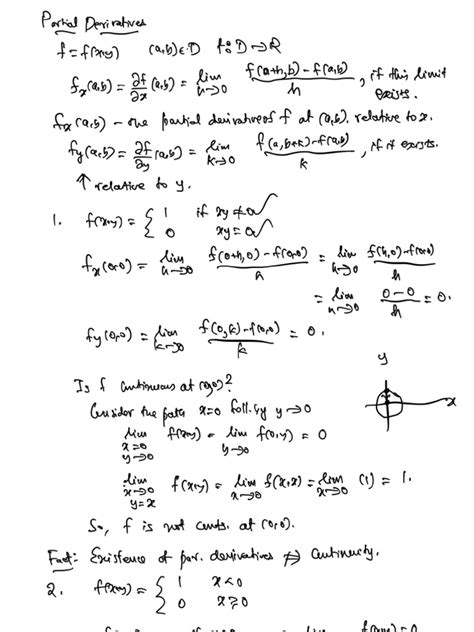 Partial Derivatives
f = f(x,y) (a,b) ∈ D f: D → R
f_x(a,b) = ∂f/∂x (a,b) = lim_{h→0} (f(a+h,b) - f(a,b))/h, if this limit exists.
f_x(a,b) - one partial derivative of f at (a,b). relative to x.
f_y(a,b) = ∂f/∂y (a,b) = lim_{k→0} (f(a,b+k) - f(a,b))/k, if it exists.
↑ relative to y.
1. f(x,y) = { 1 if xy ≠ 0
0 xy = 0
f_x(0,0) = lim_{h→0} (f(0+h,0) - f(0,0))/h = lim_{h→0} (f(h,0) - f(0,0))/h
= lim_{h→0} (0 - 0)/h = 0.
f_y(0,0) = lim_{k→0} (f(0,k) - f(0,0))/k = 0.
y
Is f continuous at (0,0)?
Consider the path x=0 foll. by y→0
x
lim_{x=0, y→0} f(x,y) = lim_{y→0} f(0,y) = 0
lim_{x→0, y=x} f(x,y) = lim_{x→0} f(x,x) = lim_{x→0} (1) = 1.
So, f is not cont. at (0,0).
Fact: Existence of par. derivatives ⇏ continuity.
2. f(x,y) = { 1 x<0
0 x ≥ 0